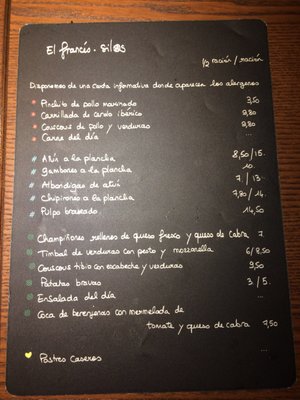 El francés. Silos
1/2 ración / ración
Disponemos de una carta informativa donde aparecen los alérgenos
Pinchito de pollo marinado 3,50
Carrillada de cerdo ibérico 9,80
Couscous de pollo y verduras 9,80
Carne del día ...
Atún a la plancha 8,50/15.
Gambones a la plancha 10.
Albóndigas de atún 7. / 13.
Chipirones a la plancha 7,80/14.
Pulpo braseado 14,50
Champiñones rellenos de queso fresco y queso de cabra 7
Timbal de verduras con pesto y mozzarella 6/8,50
Couscous tibio con escabeche y verduras 9,50
Patatas bravas 3/5.
Ensalada del día ...
Coca de berenjenas con mermelada de
tomate y queso de cabra 7,50
...
Postres Caseros